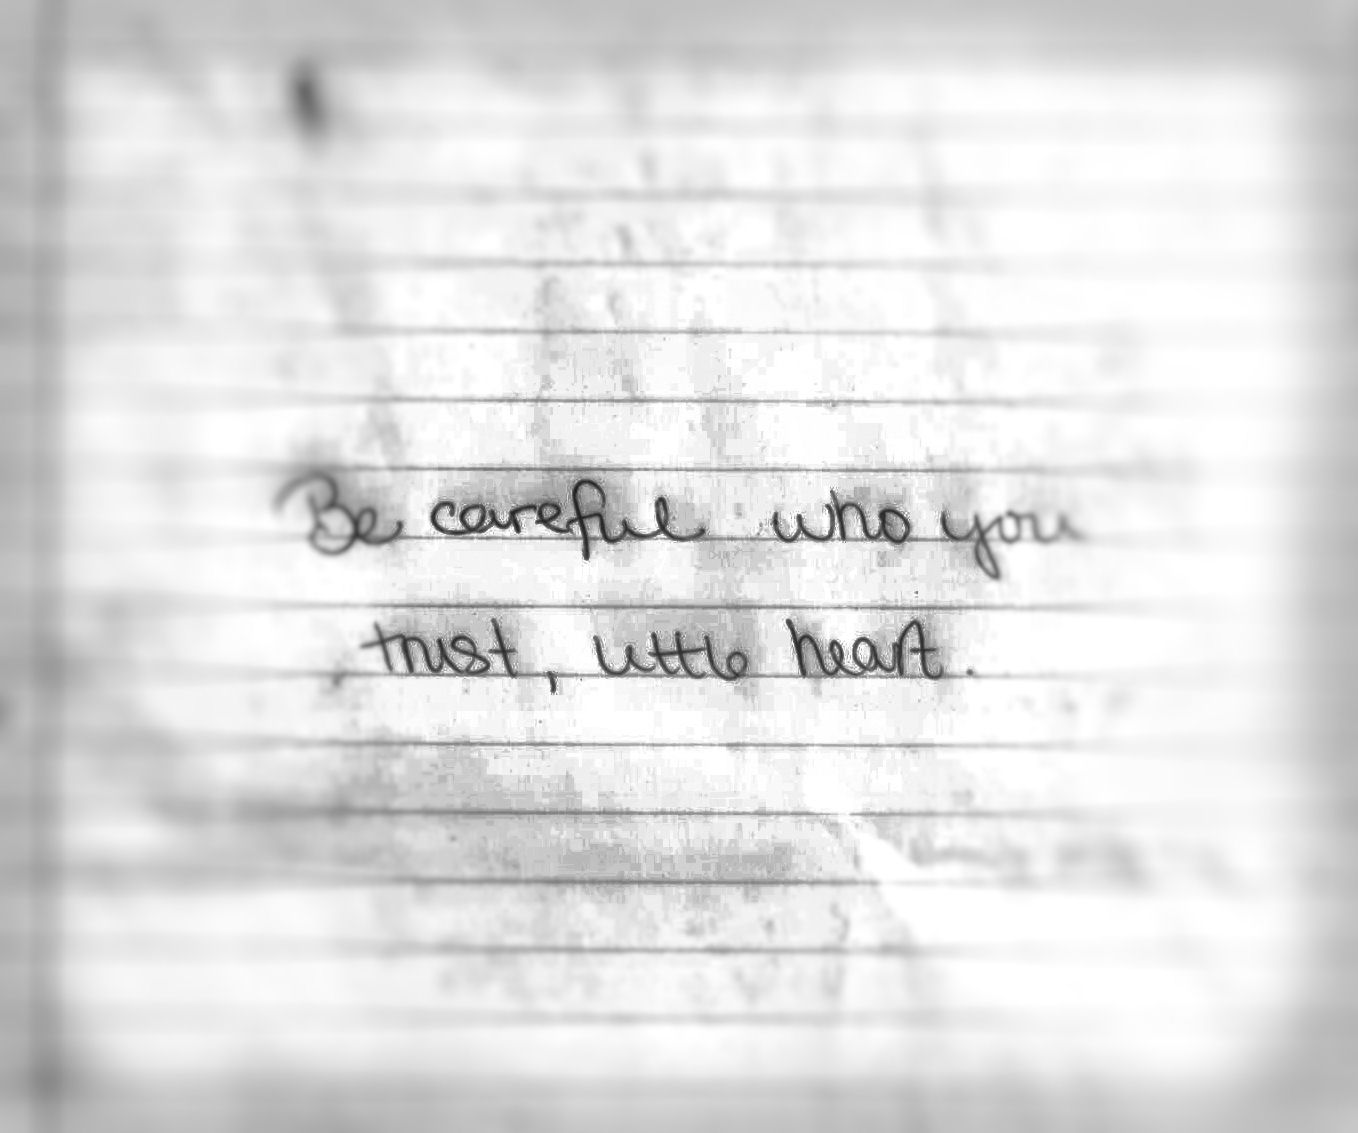 Be careful who you
trust, little heart.